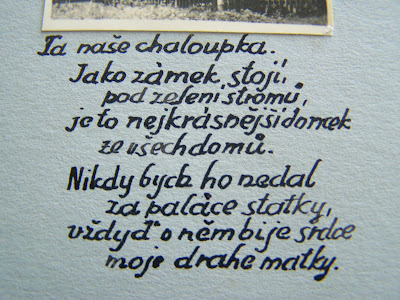 Ta naše chaloupka.
Jako zámek stojí,
pod zelení stromů,
je to nejkrásnější domek
ze všech domů.
Nikdy bych ho nedal
za paláce statky,
vždyď o něm bije srdce
moje drahe matky.